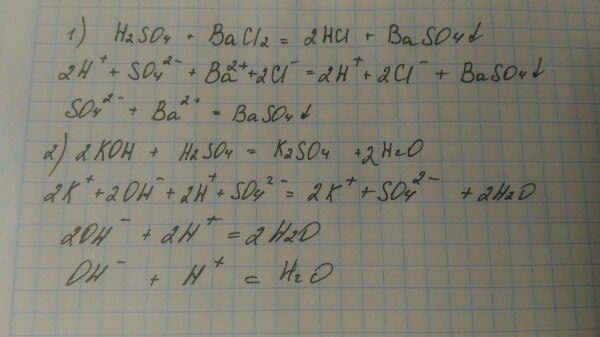 1) H₂SO₄ + BaCl₂ = 2HCl + BaSO₄↓
2H⁺ + SO₄²⁻ + Ba²⁺ + 2Cl⁻ = 2H⁺ + 2Cl⁻ + BaSO₄↓
SO₄²⁻ + Ba²⁺ = BaSO₄↓
2) 2KOH + H₂SO₄ = K₂SO₄ + 2H₂O
2K⁺ + 2OH⁻ + 2H⁺ + SO₄²⁻ = 2K⁺ + SO₄²⁻ + 2H₂O
2OH⁻ + 2H⁺ = 2H₂O
OH⁻ + H⁺ = H₂O